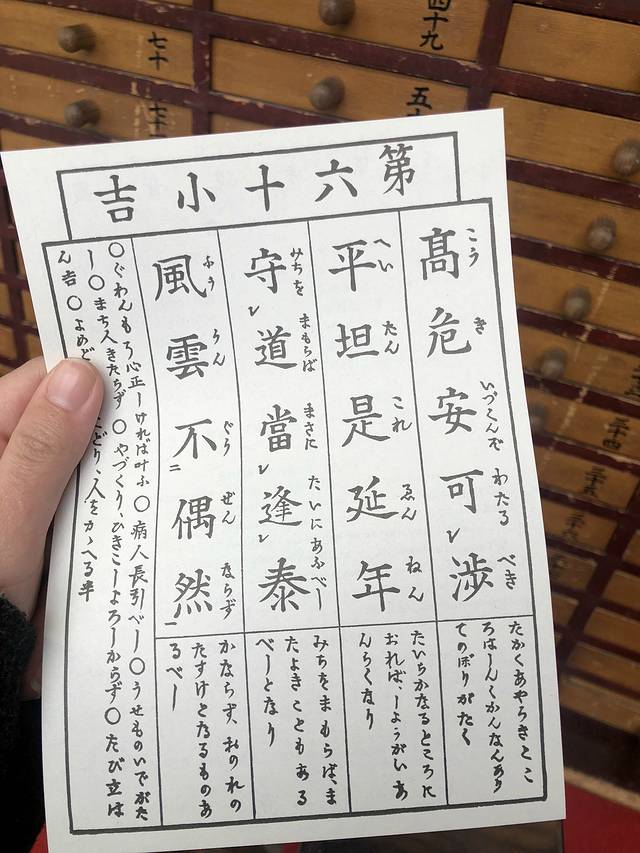 第六十小吉
こう き いづくんぞ わたる べき
髙危安可レ渉
たかくあやうきとこ
ろはしんくかんなんあり
てのぼりがたく
へい たん これ ゑん ねん
平坦是延年
たいらかなるところに
おれば、しようがい あ
んらくなり
みちを まもらば まさに たいにあふべし
守レ道當レ逢レ泰
みちをまもらば、ま
たよきこともある
べしとなり
ふう うん ぐう ぜん ならず
風雲不二偶然一
かならず、おのれの
たすけとなるものあ
るべし
〇ぐわんもう心正しければ叶ふ〇病人長引べし〇うせものいでがた
し〇まち人きたらず〇やづくり、ひきこしよろしからず〇たび立は
ん吉〇よめど どり、人をかゝへる半
四十九
七十